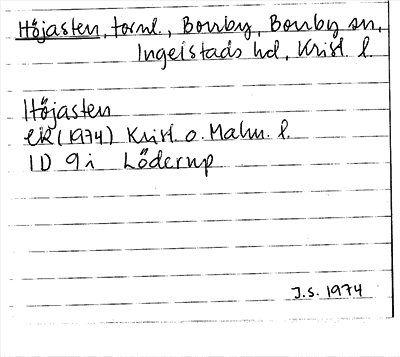 Höjasten, forml., Borrby, Borrby sn,
Ingelstads hd, Krist. l.
Höjasten
EK (1974) Krist. o. Malm. l.
1D 9i Löderup
J.S. 1974